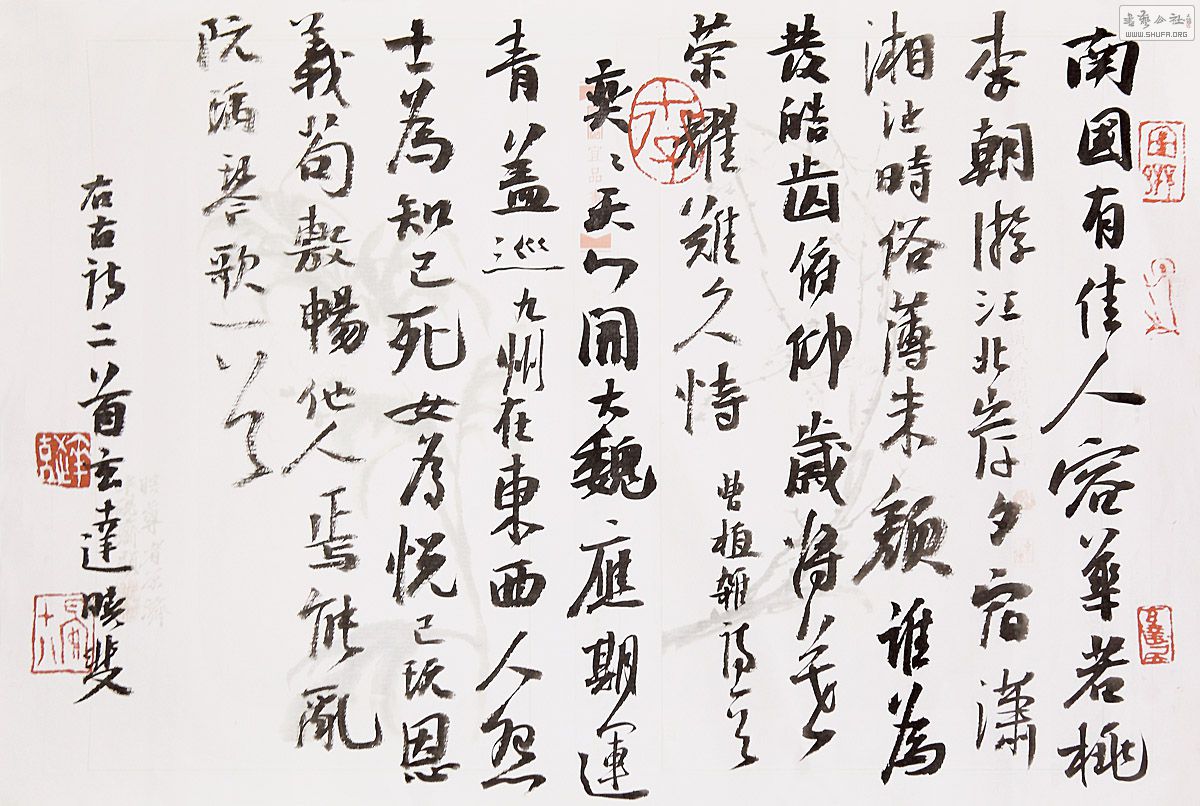 南国有佳人容華若桃
李朝游江北岸夕宿瀟
湘沚時俗薄朱顏誰為
發皓齒俯仰歲將暮
荣耀難久恃 曹植雜詩一首
奕〻天门開大魏應期運
青盖巡九州在東西人怨
士為知己死女為悅己玩恩
義苟敷暢他人焉能亂
阮瑀琴歌一首
右古詩二首玄達
書藝公社
WWW.SHUFA.ORG